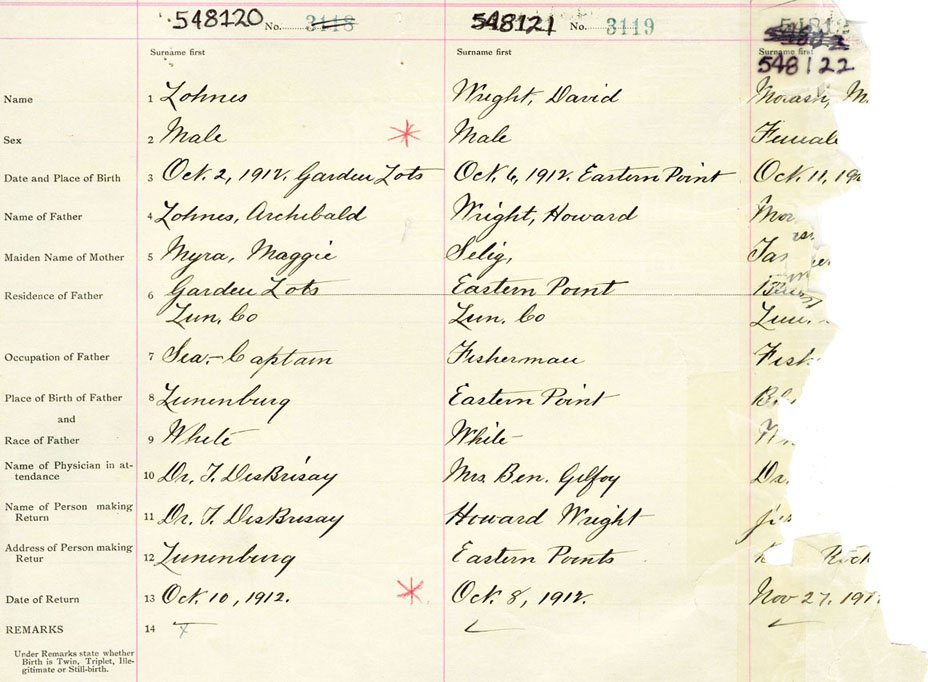 548120 No. 3118 548121 No. 3119
548122
Surname first Surname first Surname first
Name 1 Zohnes Wright, David
Sex 2 Male Male Female
Date and Place of Birth 3 Oct. 2, 1912. Garden Lots Oct. 6, 1912. Eastern Point Oct. 11, 19
Name of Father 4 Zohnes, Archibald Wright, Howard
Maiden Name of Mother 5 Myra, Maggie Selig,
Residence of Father 6 Garden Lots Eastern Point
Lun. Co Lun. Co Lun.
Occupation of Father 7 Sea-Captain Fisherman Fish
Place of Birth of Father 8 Lunenburg Eastern Point
and
Race of Father 9 White White
Name of Physician in at-
tendance 10 Dr. F. DesBrisay Mrs Ben. Gelfoy Dr.
Name of Person making
Return 11 Dr. F. DesBrisay Howard Wright
Address of Person making
Retur 12 Lunenburg Eastern Points
Date of Return 13 Oct. 10, 1912. Oct. 8, 1912. Nov 27, 191
REMARKS 14 x
Under Remarks state whether
Birth is Twin, Triplet, Ille-
gitimate or Still-birth.